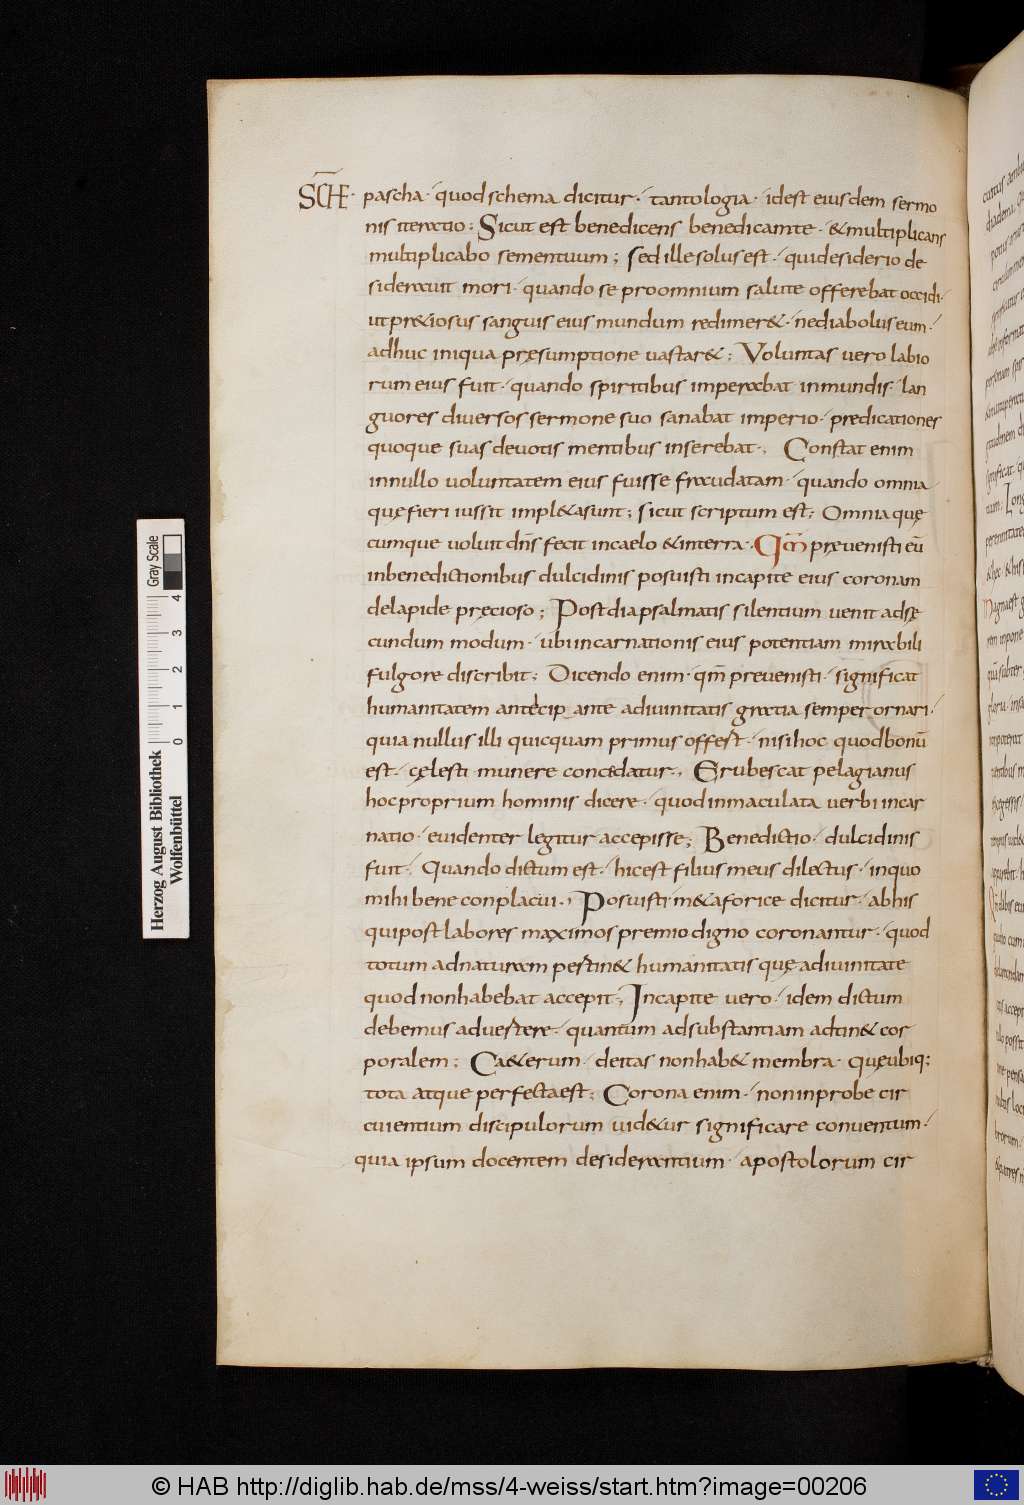 SCHE· pascha· quod schema dicitur· tantologia· idest eiusdem sermo
nis iteratio: Sicut est benedicens benedicam te· & multiplicans
multiplicabo semen tuum; sed ille solus est· qui desiderio de
siderauit mori· quando se pro omnium salute offerebat occidi·
ut pr&iosus sanguis eius mundum redimer&· ne diabolus eum·
adhuc iniqua pręsumptione uastar&: Voluntas uero labio
rum eius fuit· quando spiritibus imperabat inmundis· lan
guores diuersos sermone suo sanabat imperio· predicationes
quoque suas deuotis mentibus inserebat·, Constat enim
in nullo uoluntatem eius fuisse fraudatam· quando omnia
quę fieri iussit impl&a sunt; sicut scriptum est: Omnia quę
cumque uoluit dn̄s fecit in caelo & in terra· Qm̄ preuenisti eū
in benedictionibus dulcidinis posuisti in capite eius coronam
de lapide pręcioso; Post diapsalmatis silentium uenit ad sę
cundum modum· ubi incarnationis eius potentiam mirabili
fulgore discribit: Dicendo enim· qm̄ preuenisti· significat
humanitatem antecip ante a diuinitatis gratia semper ornari·
quia nullus illi quicquam primus offest· nisi hoc quod bonū
est· cęlesti munere concedatur·, Erubescat pelagianus
hoc proprium hominis dicere· quod inmaculata uerbi incar
natio· euidenter legitur accepisse; Benedictio· dulcidinis
fuit· Quando dictum est· hic est filius meus dilectus· in quo
mihi bene conplacui·, Posuisti m&aforice dicitur· ab his
qui post labores maximos premio digno coronantur· quod
totum ad naturam pertin& humanitatis quę a diuinitate
quod non habebat accepit·, In capite uero· idem dictum
debemus aduertere· quantum ad substantiam adtin& cor
poralem: Ca&erum· deitas non hab& membra· quę ubiq;
tota atque perfecta est: Corona enim· non inprobe cir
cuientium discipulorum uid&ur significare conuentum·
quia ipsum docentem desiderantium· apostolorum cir
Herzog August Bibliothek
Wolfenbüttel
Gray Scale
0 1 2 3 4
© HAB http://diglib.hab.de/mss/4-weiss/start.htm?image=00206